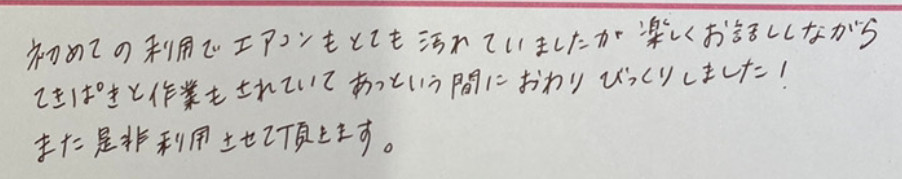 初めての利用でエアコンもとても汚れていましたが 楽しくお話ししながら
てきぱきと作業もされていて あっという間に おわり びっくりしました!
また是非利用させて頂きます。